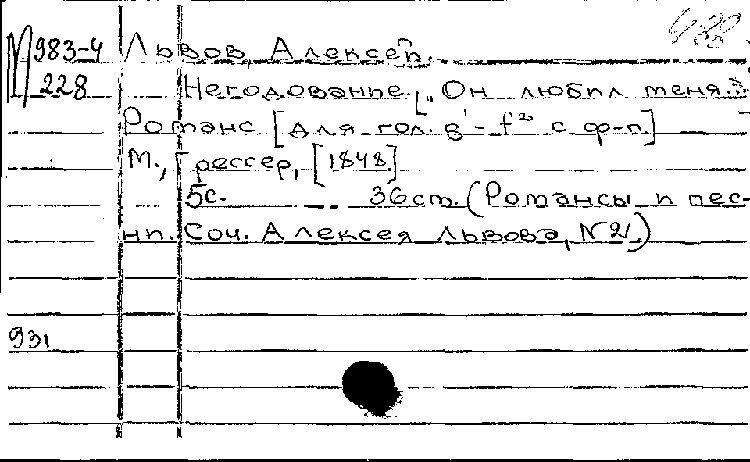 М 983-4 Львов, Алексей.
228 Негодование. [„Он любил меня..."]
Романс [для гол. g¹-f² с ф-п.]
М., Грессер, [1848.]
5с. 36см. (Романсы и пес-
ни. Соч. Алексея Львова, №21.)
931